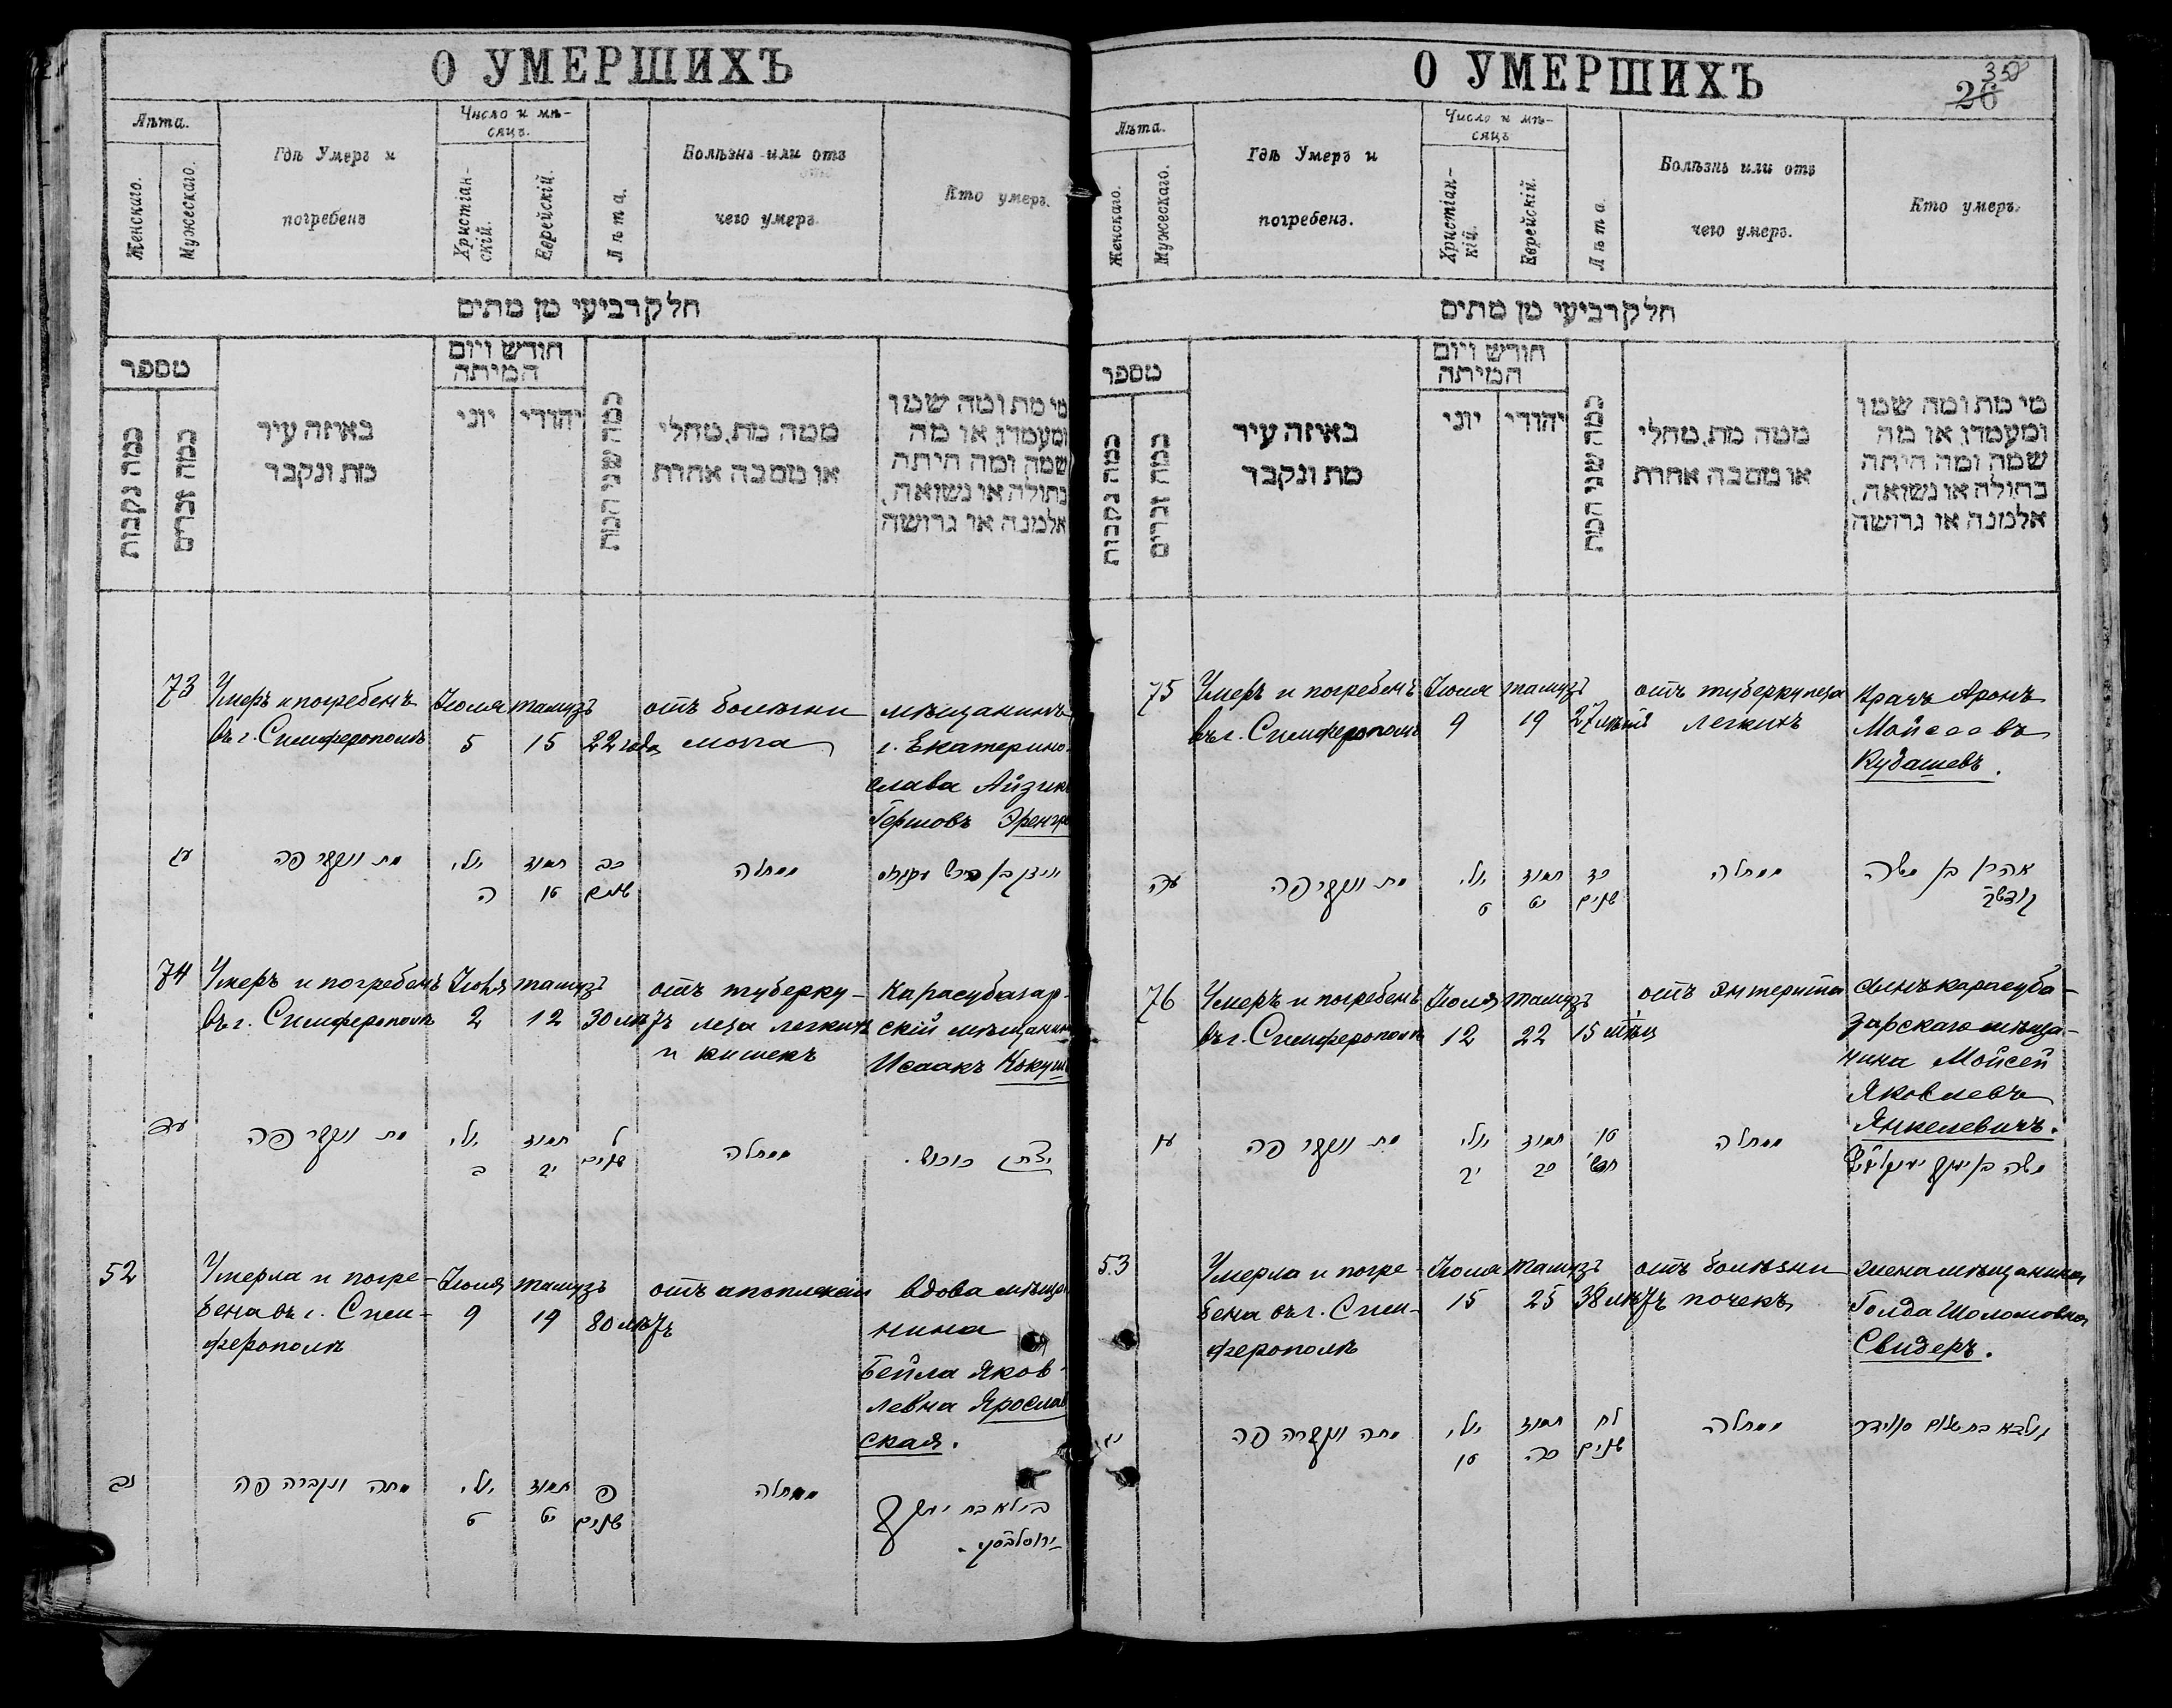 О УМЕРШИХЪ
Лѣта.
Женскаго.
Мужескаго.
Гдѣ Умеръ и
погребенъ
Число и мѣ-
сяцъ.
Христіан-
скій.
Еврейскій.
Лѣта.
Болѣзнь или отъ
чего умеръ.
Кто умеръ.
חלק רביעי מן מתים
מספר
כמה נקבות
כמה זכרים
באיזה עיר
מת ונקבר
חודש ויום
המיתה
יוני
יהודי
כמה שני המת
ממה מת, מחלי
או מסבה אחרת
מי מת ומה שמו
ומעמדו, או מה
שמה ומה היתה
בתולה או נשואה,
אלמנה או גרושה
73
Умеръ и погребенъ
въ г. Симферополѣ
Іюля
5
тамузъ
15
22 года
отъ болѣзни
мозга
мѣщанинъ
г. Екатерино-
слава Айзикъ
Гершовъ
עג
מת ונקבר פה
יולי
ה
תמוז
טו
כב
שנים
ממחלה
74
Умеръ и погребенъ
въ г. Симферополѣ
Іюля
2
тамузъ
12
30 лѣтъ
отъ туберку-
леза легкихъ
и кишекъ
Карасубазар-
скій мѣщанинъ
Исаакъ Кокуш
עד
מת ונקבר פה
יולי
ב
תמוז
יב
ל
שנים
ממחלה
יצחק כוכוש.
52
Умерла и погре-
бена въ г. Сим-
ферополѣ
Іюля
9
тамузъ
19
80 лѣтъ
отъ апоплексіи
вдова мѣща-
нина
Бейла Яков-
левна Ярослав
ская.
נב
מתה ונקברה פה
יולי
ט
תמוז
יט
פ
שנים
ממחלה
ביילא בת יעקב
ירוסלבסקי.
О УМЕРШИХЪ
358
26
Лѣта.
Женскаго.
Мужескаго.
Гдѣ Умеръ и
погребенъ.
Число и мѣ-
сяцъ
Христіан-
кій.
Еврейскій.
Лѣта.
Болѣзнь или отъ
чего умеръ.
Кто умеръ.
חלק רביעי מן מתים
מספר
כמה נקבות
כמה זכרים
באיזה עיר
מת ונקבר
חודש ויום
המיתה
יוני
יהודי
כמה שני המת
ממה מת, מחלי
או מסבה אחרת
מי מת ומה שמו
ומעמדו, או מה
שמה ומה היתה
בתולה או נשואה,
אלמנה או גרושה
75
Умеръ и погребенъ
въ г. Симферополѣ
Іюля
9
тамузъ
19
27 лѣтъ
отъ туберкулеза
легкихъ
Врачъ Аронъ
Мойсеевъ
Кубашевъ.
עה
מת ונקבר פה
יולי
ט
תמוז
יט
כז
שנים
ממחלה
אהרן בן משה
76
Умеръ и погребенъ
въ г. Симферополѣ
Іюля
12
тамузъ
22
15 мѣсц
отъ энтерита
сынъ карасуба-
зарскаго мѣща-
нина Мойсей
Яковлевъ
Янкелевичъ.
עו
מת ונקבר פה
יולי
יב
תמוז
כב
טו
חדש'
ממחלה
משה בן יעקב יאנקעלעוויץ
53
Умерла и погре-
бена въ г. Сим-
ферополѣ
Іюля
15
тамузъ
25
38 лѣтъ
отъ болѣзни
почекъ
жена мѣщанина
Голда Шоломовна
Свидеръ.
נג
מתה ונקברה פה
יולי
טו
תמוז
כה
לח
שנים
ממחלה
גולדא בת שלום סווידער